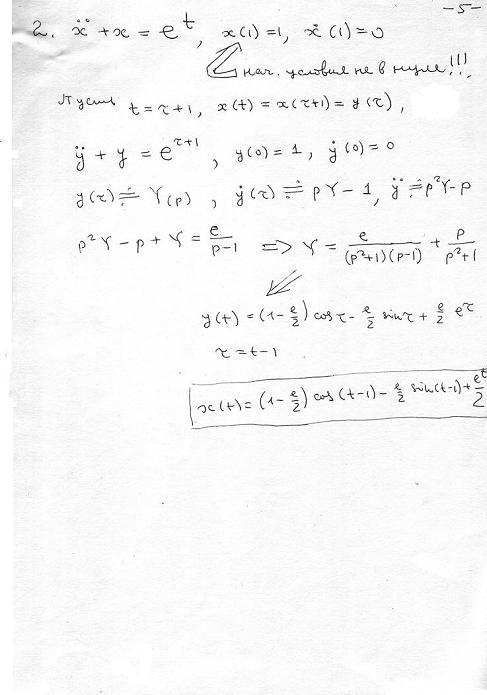 -5-
2. ẍ + x = e^t, x(1) = 1, ẋ(1) = 0
нач. условия не в нуле!!!
Пусть t = τ+1, x(t) = x(τ+1) = y(τ),
ÿ + y = e^{τ+1}, y(0) = 1, ẏ(0) = 0
y(τ) ≓ Y(p), ẏ(τ) ≓ pY − 1, ÿ ≓ p²Y − p
p²Y − p + Y = e/(p−1) ⇒ Y = e/((p²+1)(p−1)) + p/(p²+1)
y(t) = (1 − e/2) cos τ − e/2 sin τ + e/2 e^τ
τ = t−1
x(t) = (1 − e/2) cos(t−1) − e/2 sin(t−1) + e^t/2